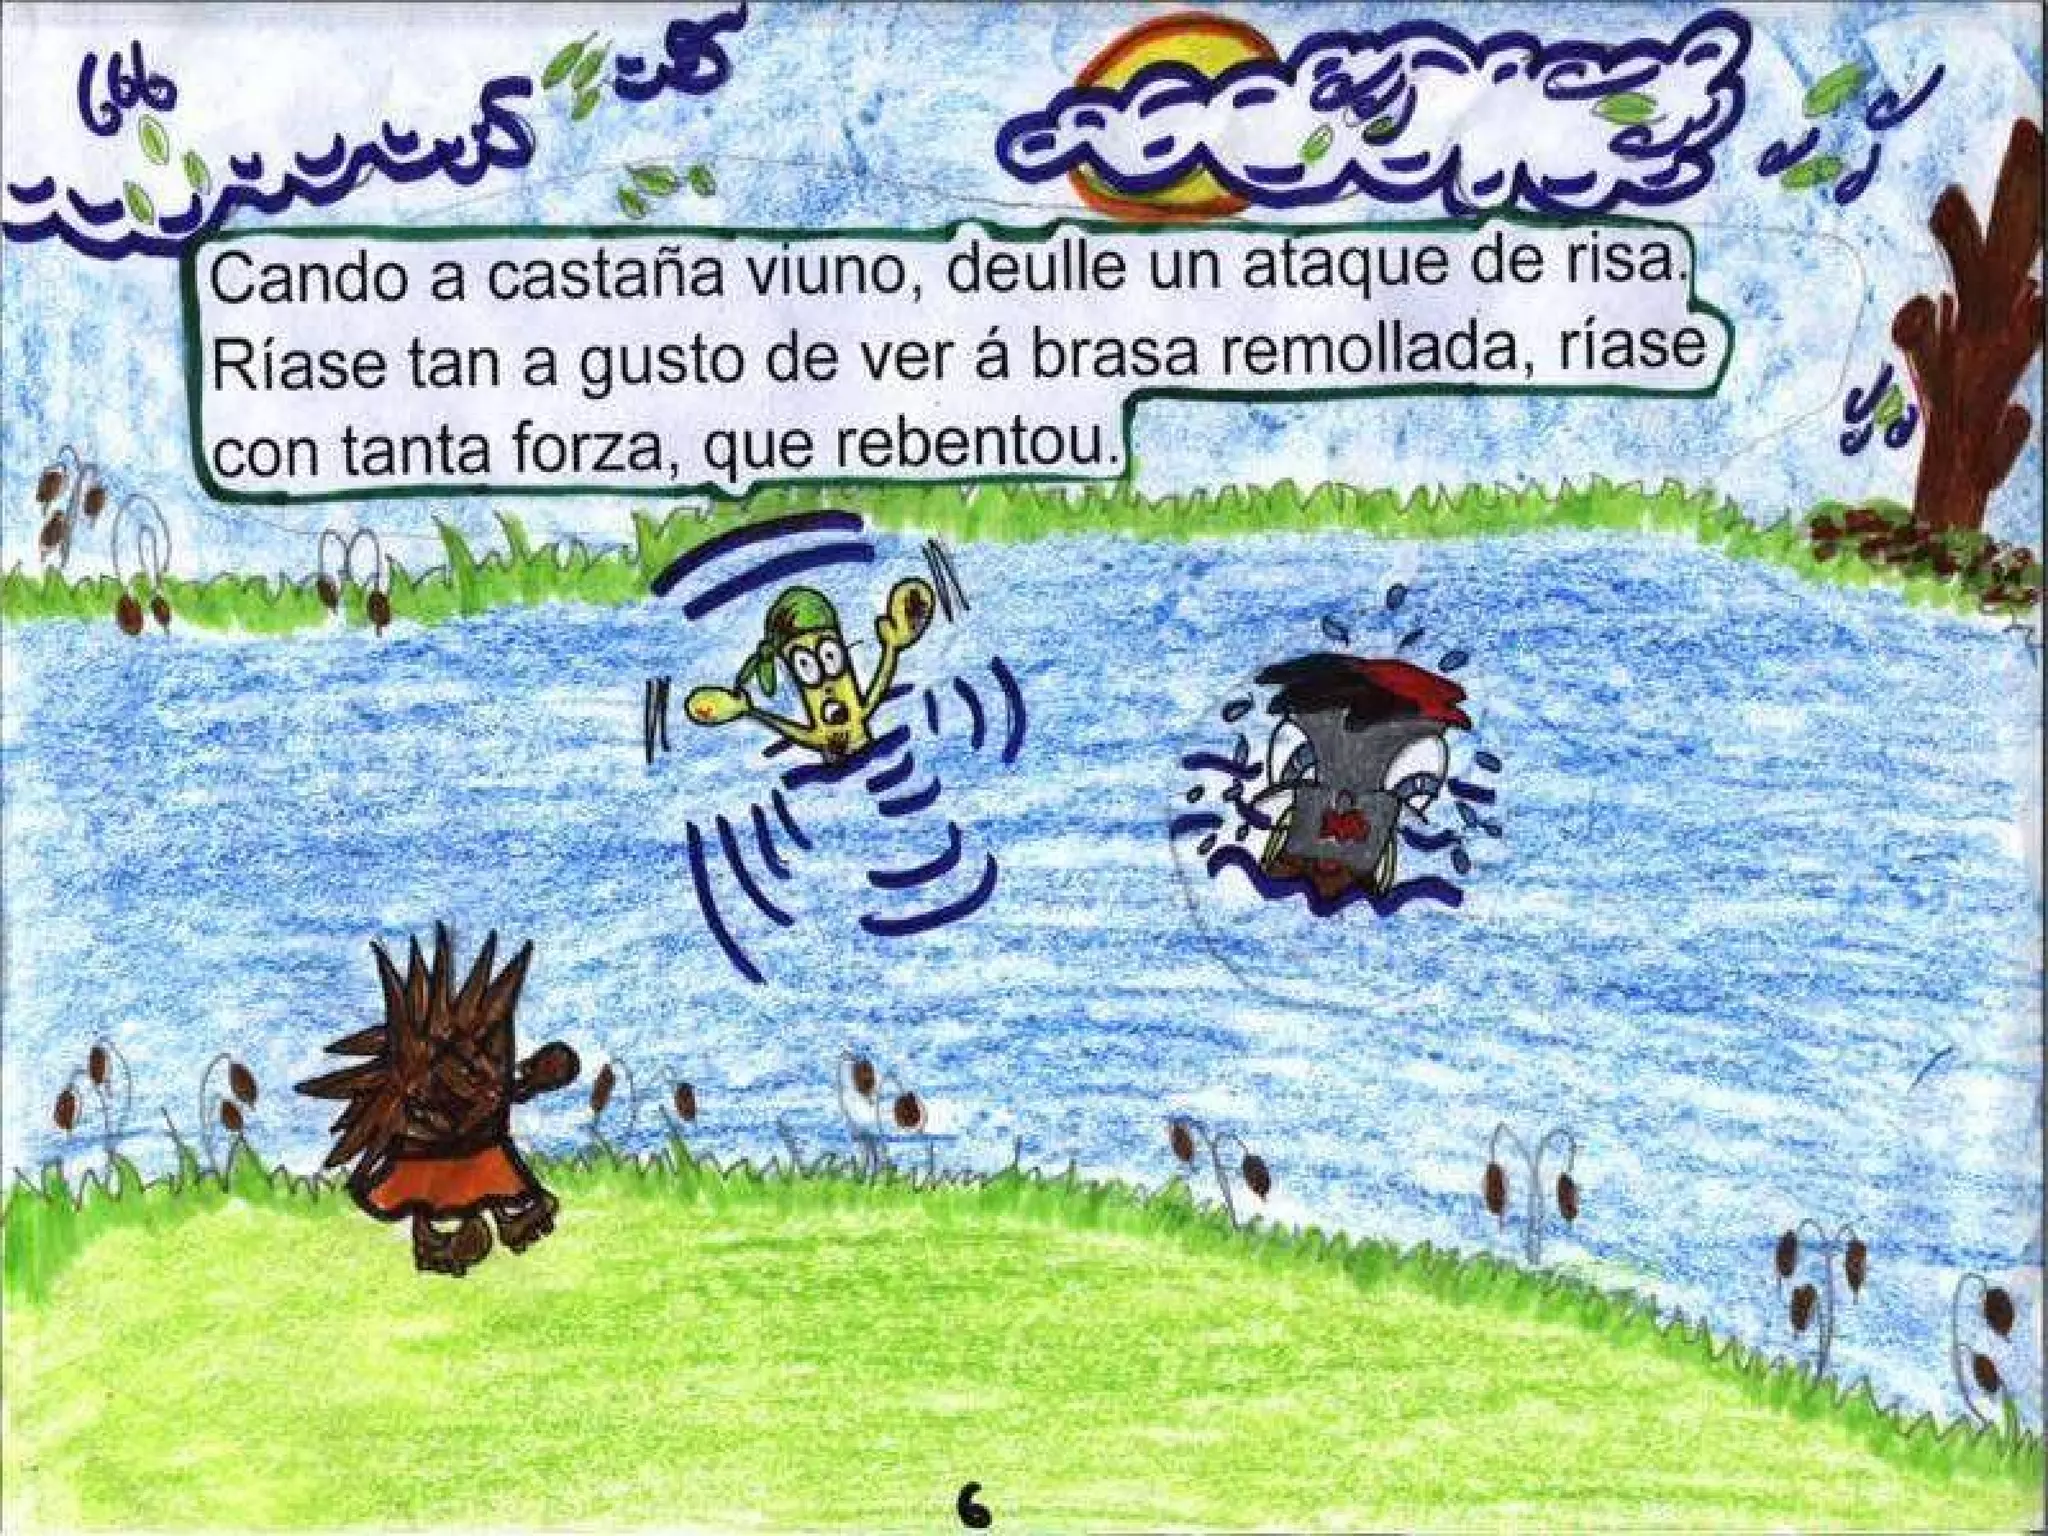 Cando a castaña viuno, deulle un ataque de risa.
Ríase tan a gusto de ver á brasa remollada, ríase
con tanta forza, que rebentou.
6